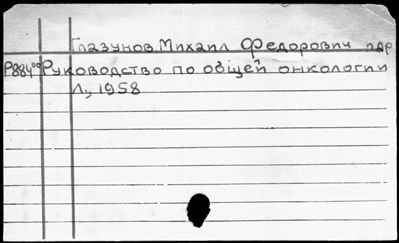 Глазунов Михаил Федорович пдр
Р884⁰⁰ Руководство по общей онкологии
Л., 1958